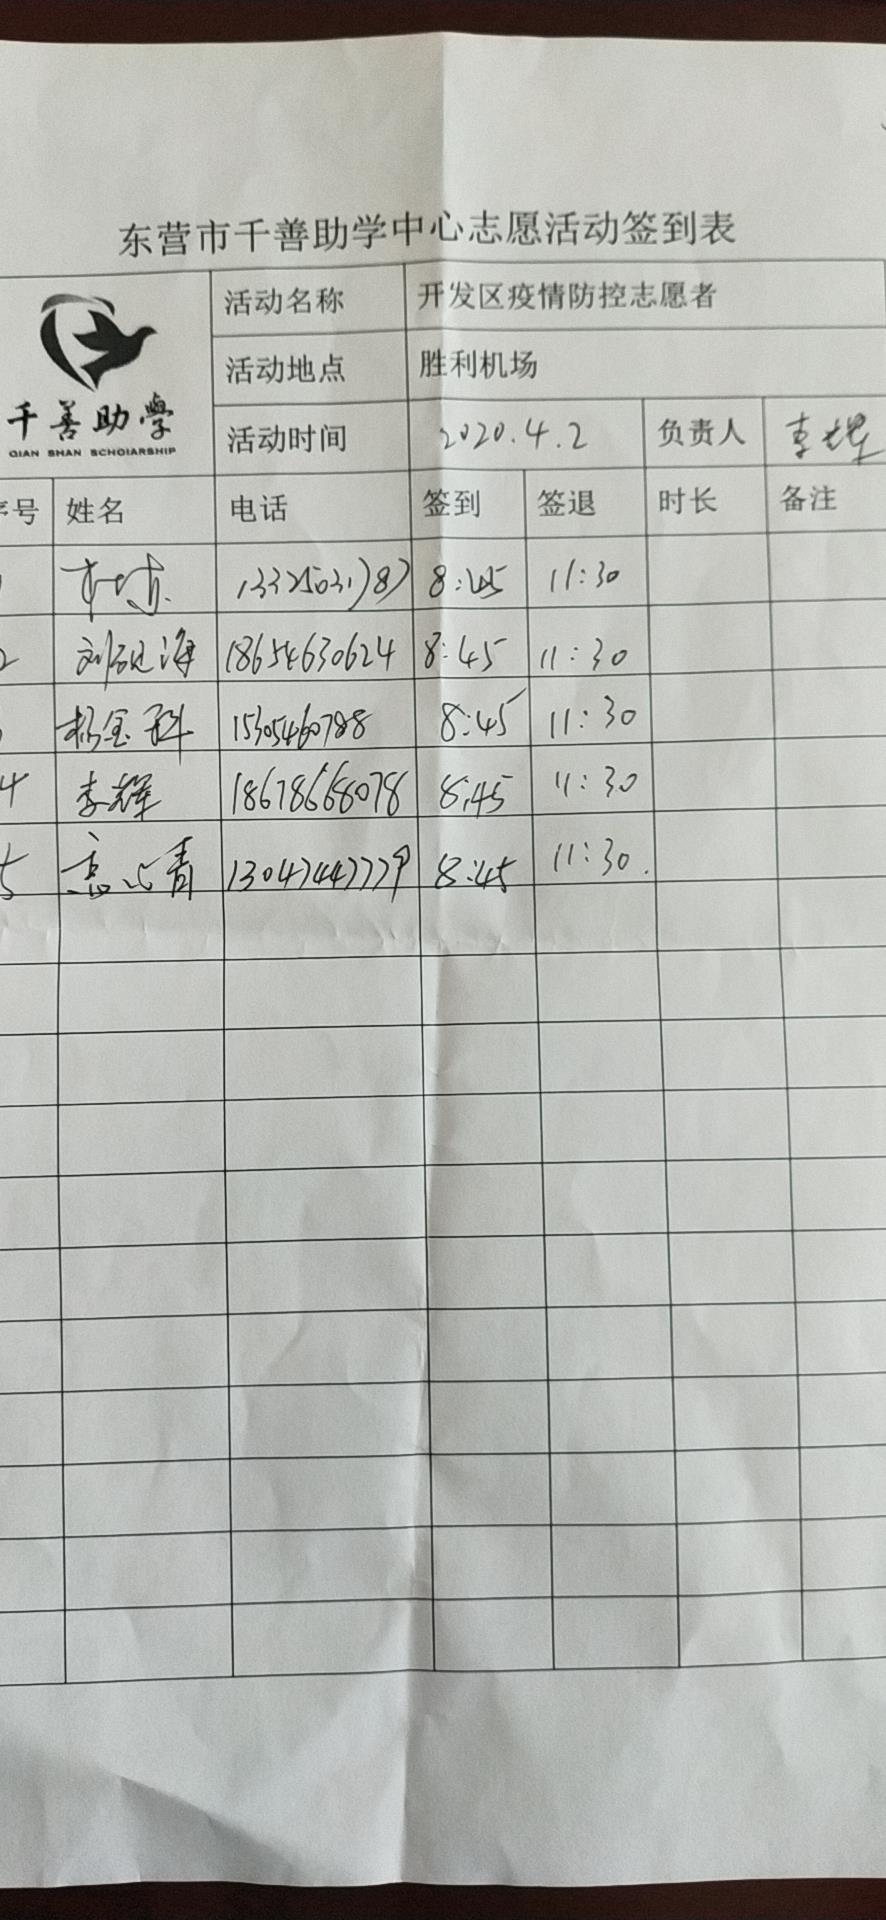 东营市千善助学中心志愿活动签到表
千善助學
QIAN SHAN SCHOIARSHIP
活动名称 开发区疫情防控志愿者
活动地点 胜利机场
活动时间 2020.4.2 负责人 李辉
序号 姓名 电话 签到 签退 时长 备注
8:45 11:30
2 刘砚海 18654630624 8:45 11:30
杨金科 15305460788 8:45 11:30
4 李辉 18678668078 8:45 11:30
5 8:45 11:30.